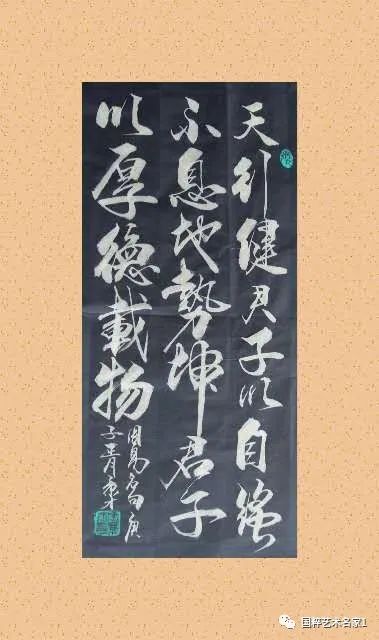 天行健君子以自強
不息地勢坤君子
以厚德載物
周易名句庚
子
国粹艺术名家1